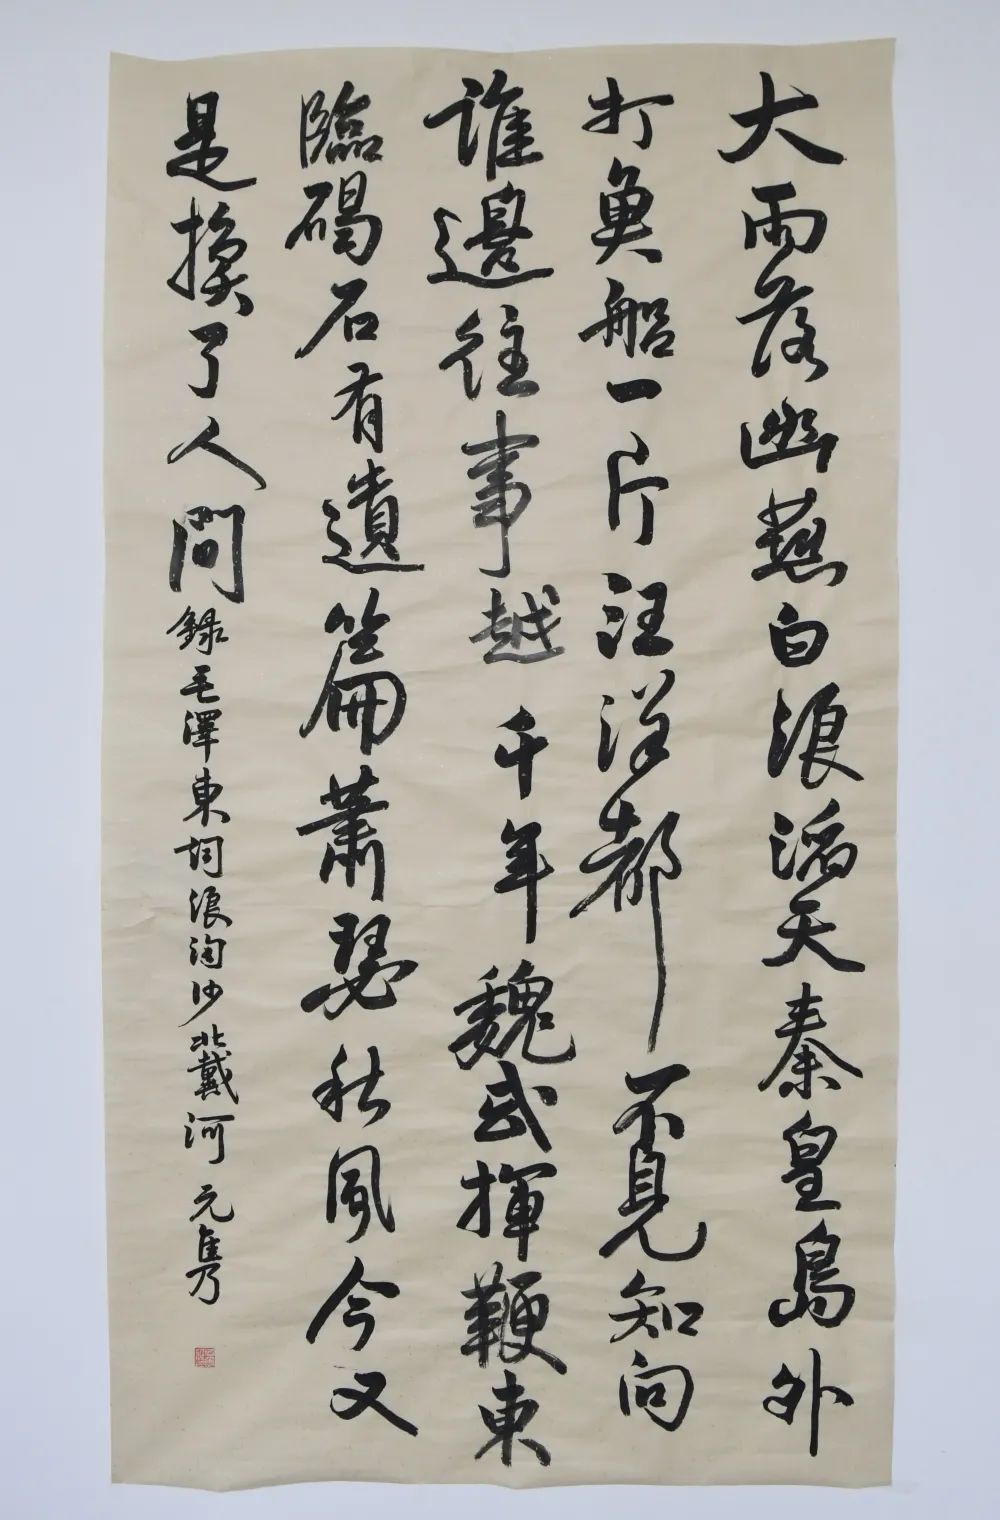 大雨落幽燕白浪滔天秦皇島外
打魚船一片汪洋都不見知向
誰邊往事越千年魏武揮鞭東
臨碣石有遺篇蕭瑟秋風今又
是換了人間 錄毛澤東詞浪淘沙北戴河 元隽